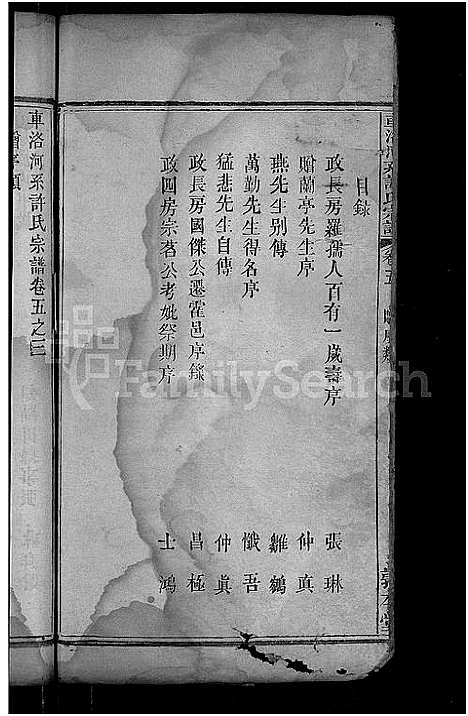 目錄
政長房羅孺人百有一歲壽序 張琳
贈蘭亭先生序 仲真
燕先生別傳 雛鶴
萬勤先生得名序 懺吾
猛悲先生自傳 仲真
政長房國傑公遷霍邑序錄 昌極
政四房宗茗公考妣祭期序 士鴻
車洛河系許氏宗譜卷五之三
FamilySearch